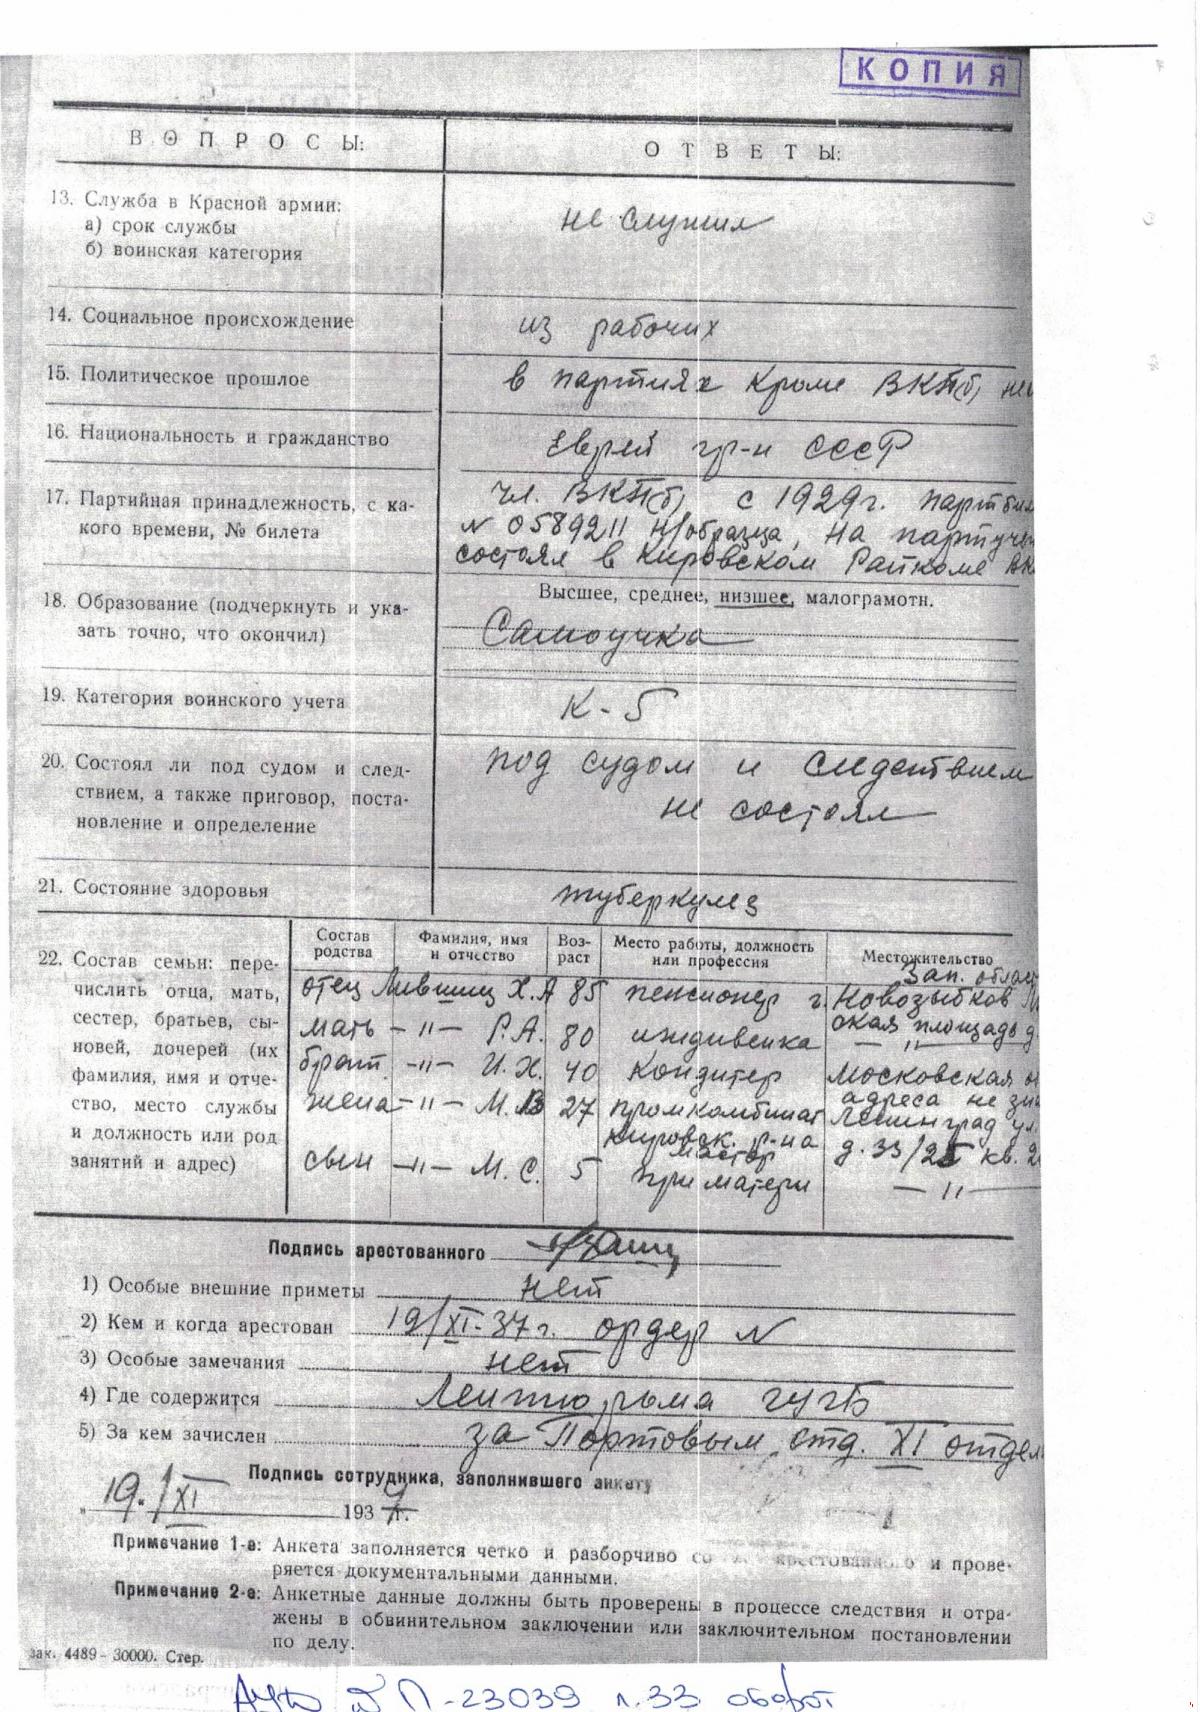 КОПИЯ
ВОПРОСЫ:
ОТВЕТЫ:
13. Служба в Красной армии:
а) срок службы
б) воинская категория
не служил
14. Социальное происхождение
из рабочих
15. Политическое прошлое
в партиях кроме ВКП(б) не
16. Национальность и гражданство
Еврей гр-н СССР
17. Партийная принадлежность, с ка-
кого времени, № билета
чл. ВКП(б) с 1929г. партбил
N 0589211 н/образца, на партуче
состоял в Кировском Райкоме ВК
18. Образование (подчеркнуть и ука-
зать точно, что окончил)
Высшее, среднее, низшее, малограмотн.
Самоучка
19. Категория воинского учета
К-5
20. Состоял ли под судом и след-
ствием, а также приговор, поста-
новление и определение
под судом и следствием
не состоял
21. Состояние здоровья
туберкулез
22. Состав семьи: пере-
числить отца, мать,
сестер, братьев, сы-
новей, дочерей (их
фамилия, имя и отче-
ство, место службы
и должность или род
занятий и адрес)
Состав родства
Фамилия, имя и отчество
Воз-
раст
Место работы, должность или профессия
Местожительство
Зап. област
отец Лившиц Х.А 85 пенсионер г. Новозыбков
ская площадь д.
мать —"— Р.А. 80 иждивенка —"—
брат —"— И.Х. 40 кондитер Московская
адреса не зна
жена —"— М.В 27 промкомбинат Ленинград ул.
Кировск. р-на
мастер
д. 33/25 кв. 2
сын —"— М.С. 5 при матери —"—
Подпись арестованного
1) Особые внешние приметы нет
2) Кем и когда арестован 19/XI-37г. ордер N
3) Особые замечания нет
4) Где содержится Лентюрьма ГУГБ
5) За кем зачислен за Портовым отд. XI отдел
Подпись сотрудника, заполнившего анкету
„ 19./XI 1937г.
Примечание 1-е: Анкета заполняется четко и разборчиво со арестованного и прове-
ряется документальными данными.
Примечание 2-е: Анкетные данные должны быть проверены в процессе следствия и отра-
жены в обвинительном заключении или заключительном постановлении
по делу.
зак. 4489-30000. Стер.
АУД № П-23039 л.33 оборот